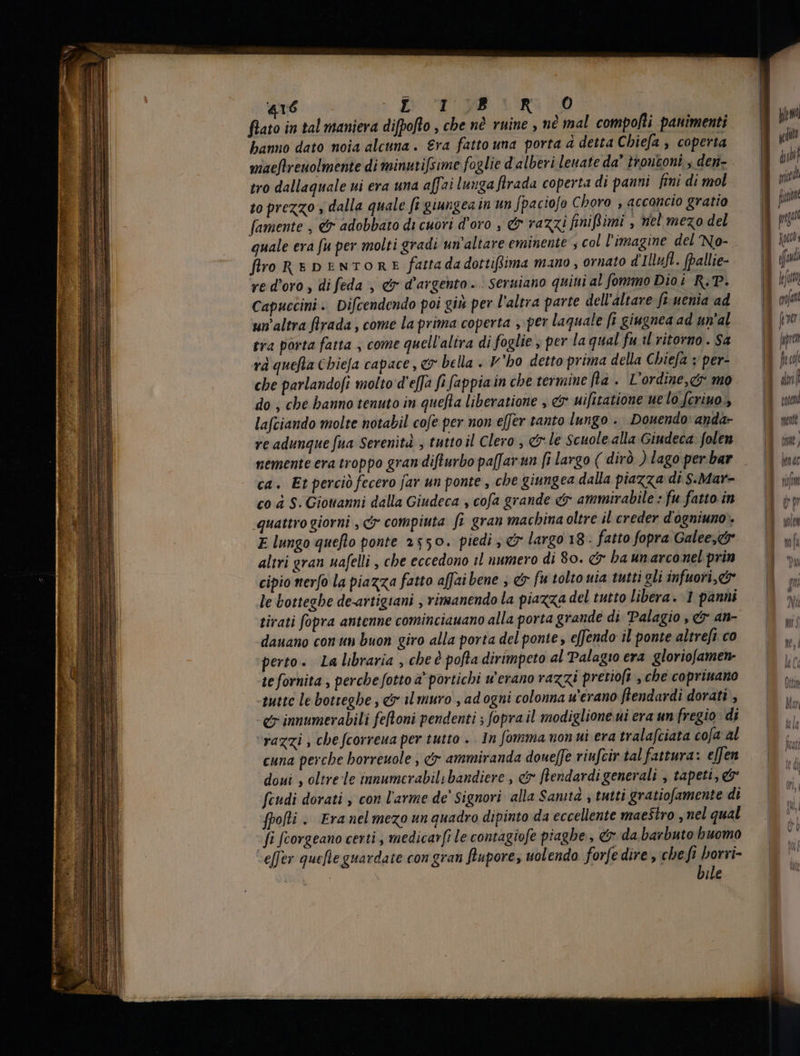 416 L I B R O
ſtato in tal maniera diſpoſto, che nè ruine, nè mal compoſti pauimenti
hanno dato noia alcuna. Era fatto una porta à detta Chieſa, coperta
maeſtreuolmente di minutiſsime foglie d'alberi leuate da' tronconi, den-
tro dallaquale ui era una aſſai lunga ſtrada coperta di panni fini di mol
to prezzo, dalla quale ſi giungea in un ſpacioſo Choro, acconcio gratio
ſamente, & adobbato di cuori d'oro, & razzi finiſsimi, nel mezo del
quale era ſu per molti gradi un'altare eminente, col l'imagine del No-
ſtro REDENTORE fatta da dottiſsima mano, ornato d'Illuſt. ſpallie-
re d'oro, di ſeda, & d'argento. Seruiano quiui al ſommo Dio i R.P.
Capuccini. Diſcendendo poi giù per l'altra parte dell'altare ſi uenia ad
un'altra ſtrada, come la prima coperta, per laquale ſi giugnea ad un'al
tra porta fatta, come quell'altra di foglie, per la qual fu il ritorno. Sa
rà queſta Chieſa capace, & bella. V'ho detto prima della Chieſa; per-
che parlandoſi molto d'eſſa ſi ſappia in che termine ſta. L'ordine, & mo
do, che hanno tenuto in queſta liberatione, & uiſitatione ue lo ſcriuo,
laſciando molte notabil coſe per non eſſer tanto lungo. Douendo anda-
re adunque ſua Serenità, tutto il Clero, & le Scuole alla Giudeca ſolen
nemente era troppo gran diſturbo paſſar un ſi largo (dirò) lago per bar
ca. Et perciò fecero far un ponte, che giungea dalla piazza di S.Mar-
co à S. Giouanni dalla Giudeca, coſa grande & ammirabile: fu fatto in
quattro giorni, & compiuta ſi gran machina oltre il creder d'ogniuno.
E lungo queſto ponte 2550. piedi, & largo 18. fatto ſopra Galee, &
altri gran uaſelli, che eccedono il numero di 80. & ha un arco nel prin
cipio uerſo la piazza fatto aſſai bene, & fu tolto uia tutti gli infuori, &
le botteghe de artigiani, rimanendo la piazza del tutto libera. I panni
tirati ſopra antenne cominciauano alla porta grande di Palagio, & an-
dauano con un buon giro alla porta del ponte, eſſendo il ponte altreſi co
perto. La libraria, che è poſta dirimpeto al Palagio era glorioſamen-
te fornita, perche ſotto a' portichi u'erano razzi pretioſi, che copriuano
tutte le botteghe, & il muro, ad ogni colonna u'erano ſtendardi dorati,
& innumerabili feſtoni pendenti; ſopra il modiglione ui era un fregio di
razzi, che ſcorreua per tutto. In ſomma non ui era tralaſciata coſa al
cuna perche horreuole, & ammiranda doueſſe riuſcir tal fattura: eſſen
doui, oltre le innumerabili bandiere, & ſtendardi generali, tapeti, &
ſcudi dorati, con l'arme de' Signori alla Sanità, tutti gratioſamente di
ſpoſti. Era nel mezo un quadro dipinto da eccellente maeſtro, nel qual
ſi ſcorgeano certi, medicarſi le contagioſe piaghe, & da barbuto huomo
eſſer queſte guardate con gran ſtupore, uolendo forſe dire, che ſi horri-
bile